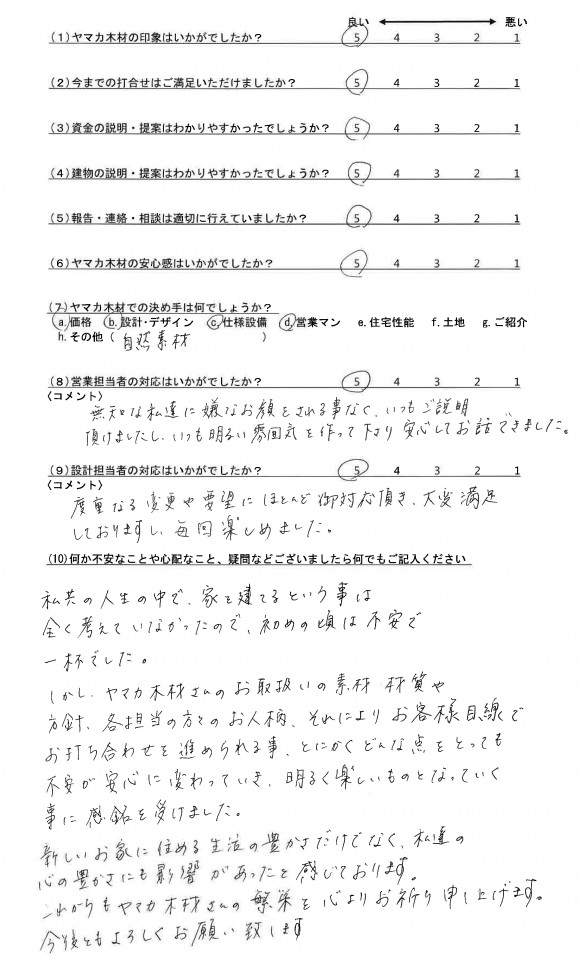 良い 悪い
(1)ヤマカ木材の印象はいかがでしたか？ 5 4 3 2 1
(2)今までの打合せはご満足いただけましたか？ 5 4 3 2 1
(3)資金の説明・提案はわかりやすかったでしょうか？ 5 4 3 2 1
(4)建物の説明・提案はわかりやすかったでしょうか？ 5 4 3 2 1
(5)報告・連絡・相談は適切に行えていましたか？ 5 4 3 2 1
(6)ヤマカ木材の安心感はいかがでしたか？ 5 4 3 2 1
(7)ヤマカ木材での決め手は何でしょうか？
a.価格 b.設計・デザイン c.仕様設備 d.営業マン e.住宅性能 f.土地 g.ご紹介
h.その他（ 自然素材 ）
(8)営業担当者の対応はいかがでしたか？ 5 4 3 2 1
〈コメント〉
無知な私達に嫌なお顔をされる事なく、いつもご説明
頂けましたし、いつも明るい雰囲気を作って下さり安心してお話できました。
(9)設計担当者の対応はいかがでしたか？ 5 4 3 2 1
〈コメント〉
度重なる変更や要望にほとんど御対応頂き、大変満足
しておりますし、毎回楽しめました。
(10)何か不安なことや心配なこと、疑問などございましたら何でもご記入ください
私共の人生の中で、家を建てるという事は
全く考えていなかったので、初めの頃は不安で
一杯でした。
しかし、ヤマカ木材さんのお取扱いの素材 材質や
方針、各担当の方々のお人柄、それによりお客様目線で
お打ち合わせを進められる事、とにかくどんな点をとっても
不安が安心に変わっていき、明るく楽しいものとなっていく
事に感銘を受けました。
新しいお家に住める生活の豊かさだけでなく、私達の
心の豊かさにも影響があったと感じております。
これからもヤマカ木材さんの繁栄を心よりお祈り申し上げます。
今後ともよろしくお願い致します